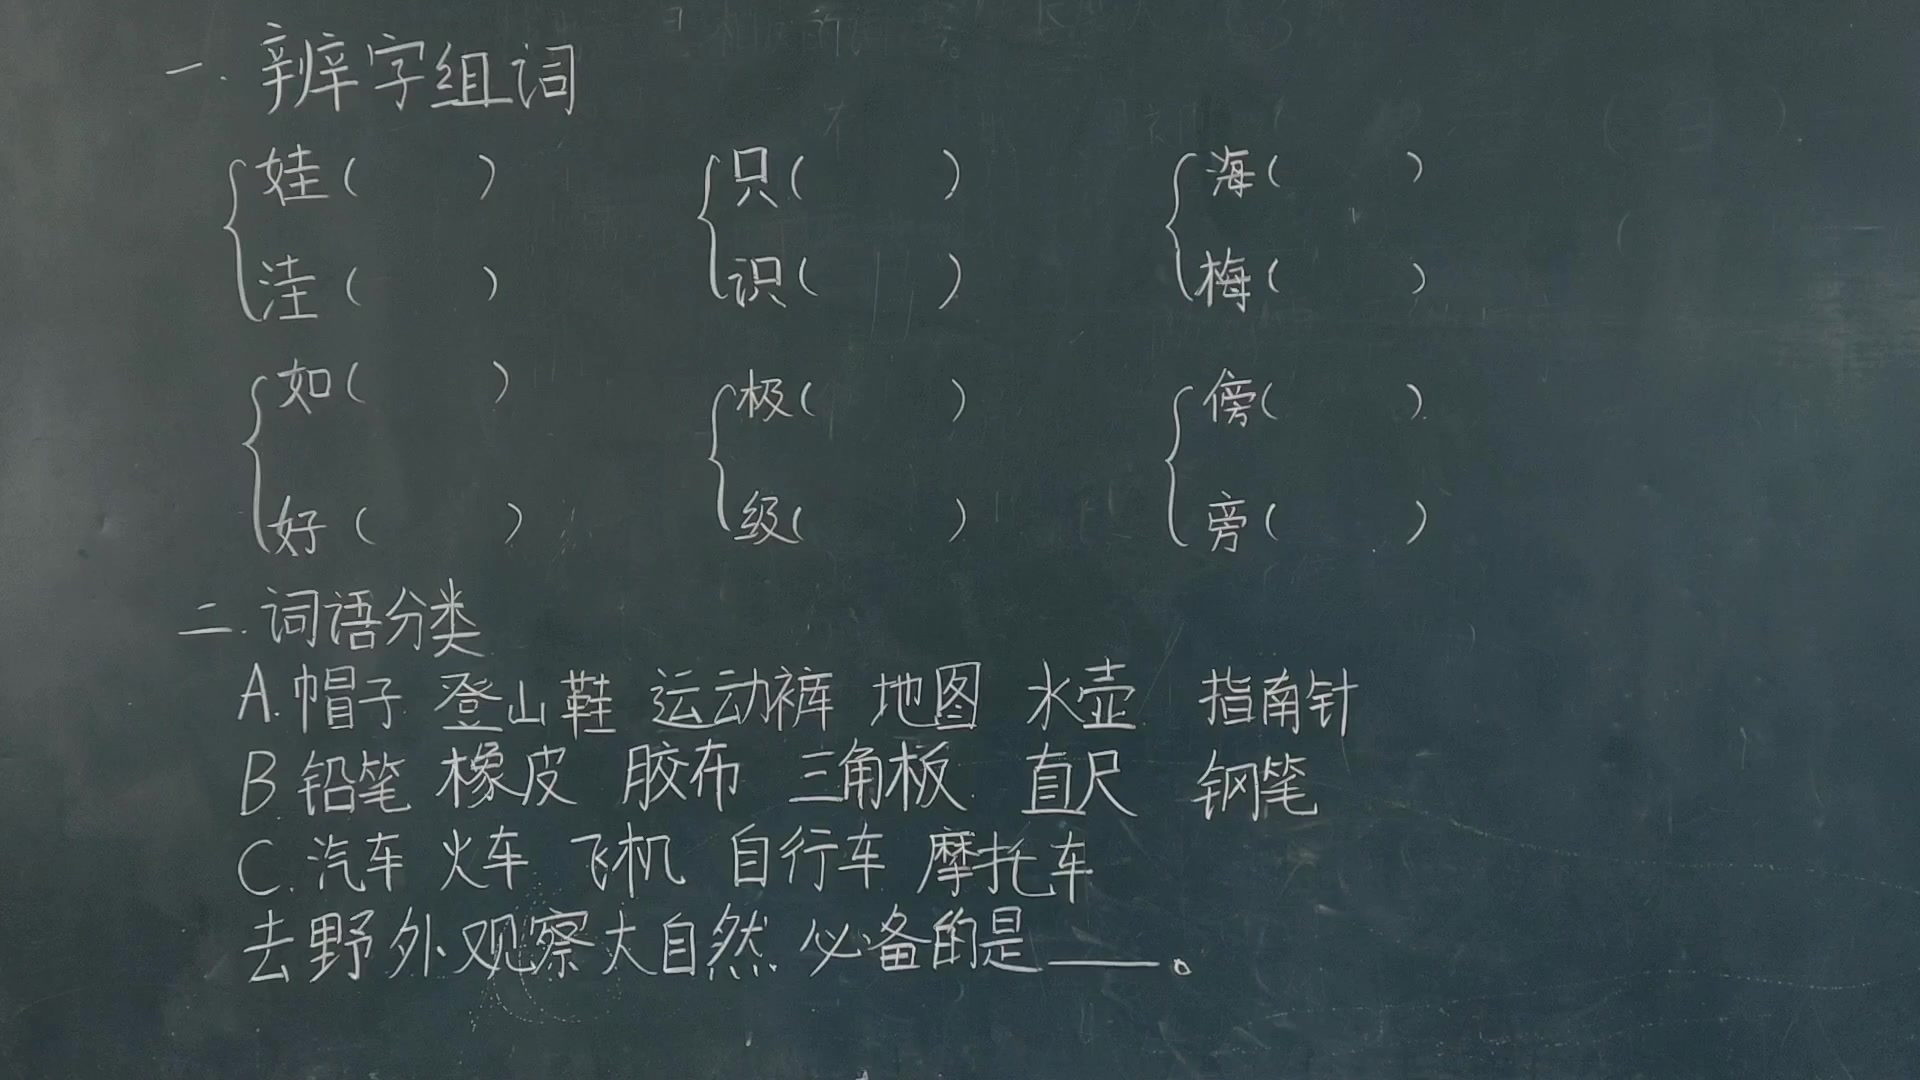 一. 辨字组词
娃(  ) 只(  ) 海(  )
洼(  ) 识(  ) 梅(  )
如(  ) 极(  ) 傍(  )
好(  ) 级(  ) 旁(  )
二. 词语分类
A. 帽子 登山鞋 运动裤 地图 水壶 指南针
B. 铅笔 橡皮 胶布 三角板 直尺 钢笔
C. 汽车 火车 飞机 自行车 摩托车
去野外观察大自然必备的是____。